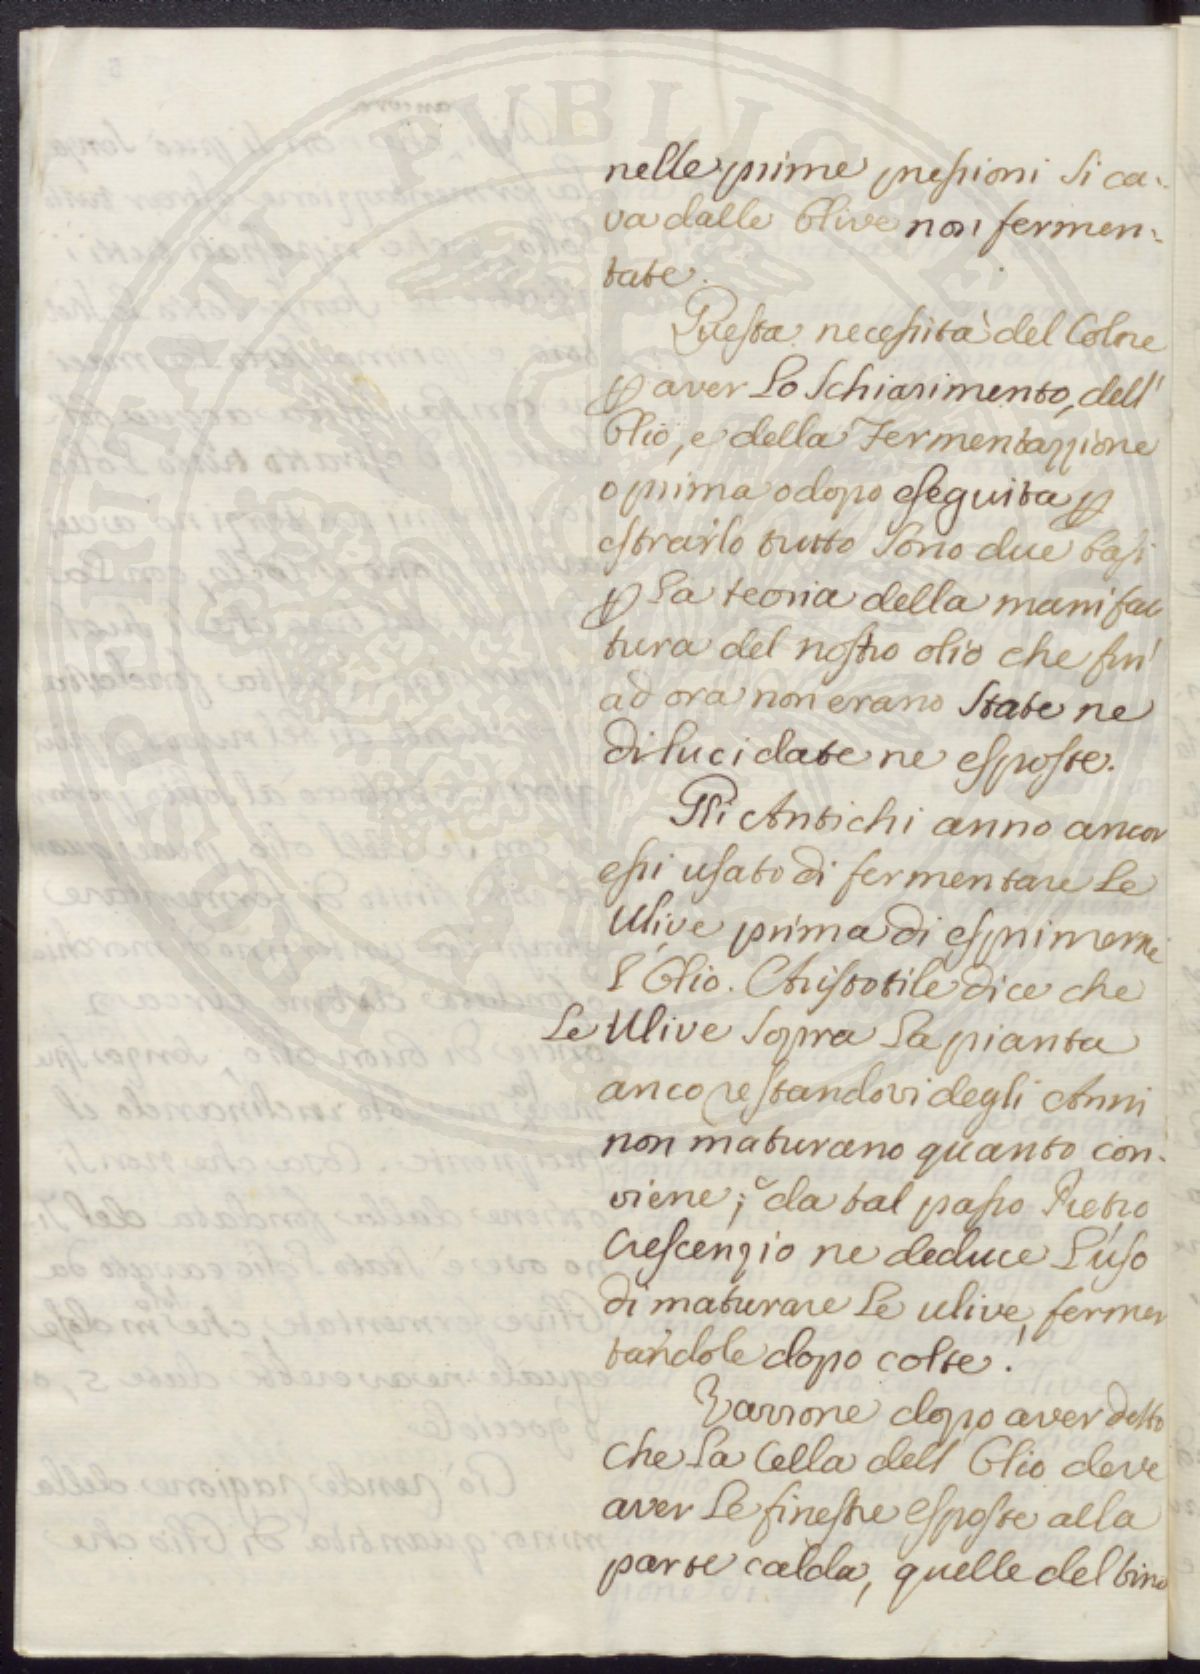 nelle prime pressioni si ca-
va dalle Olive non fermen-
tate.
Questa necessità del Colore
p aver Lo Schiarimento, dell'
Olio, e della Fermentazzione
o prima o dopo eseguita p
estrarlo tutto sono due basi
p La teoria della manifac
tura del nostro olio che fin'
ad ora non erano State ne
dilucidate ne esposte.
Gli Antichi anno ancor
essi usato di fermentare Le
Ulive prima di esprimerne
L'Olio. Aristotile dice che
Le Ulive sopra La pianta
anco restandovi degli Anni
non maturano quanto con-
viene; da tal passo Pietro
Crescenzio ne deduce L'uso
di maturare Le ulive, fermen
tandole dopo colte.
Varrone dopo aver detto
Che La Cella dell Olio deve
aver Le finestre esposte alla
parte calda, quelle del vino
SPIRITI PUBLICAE